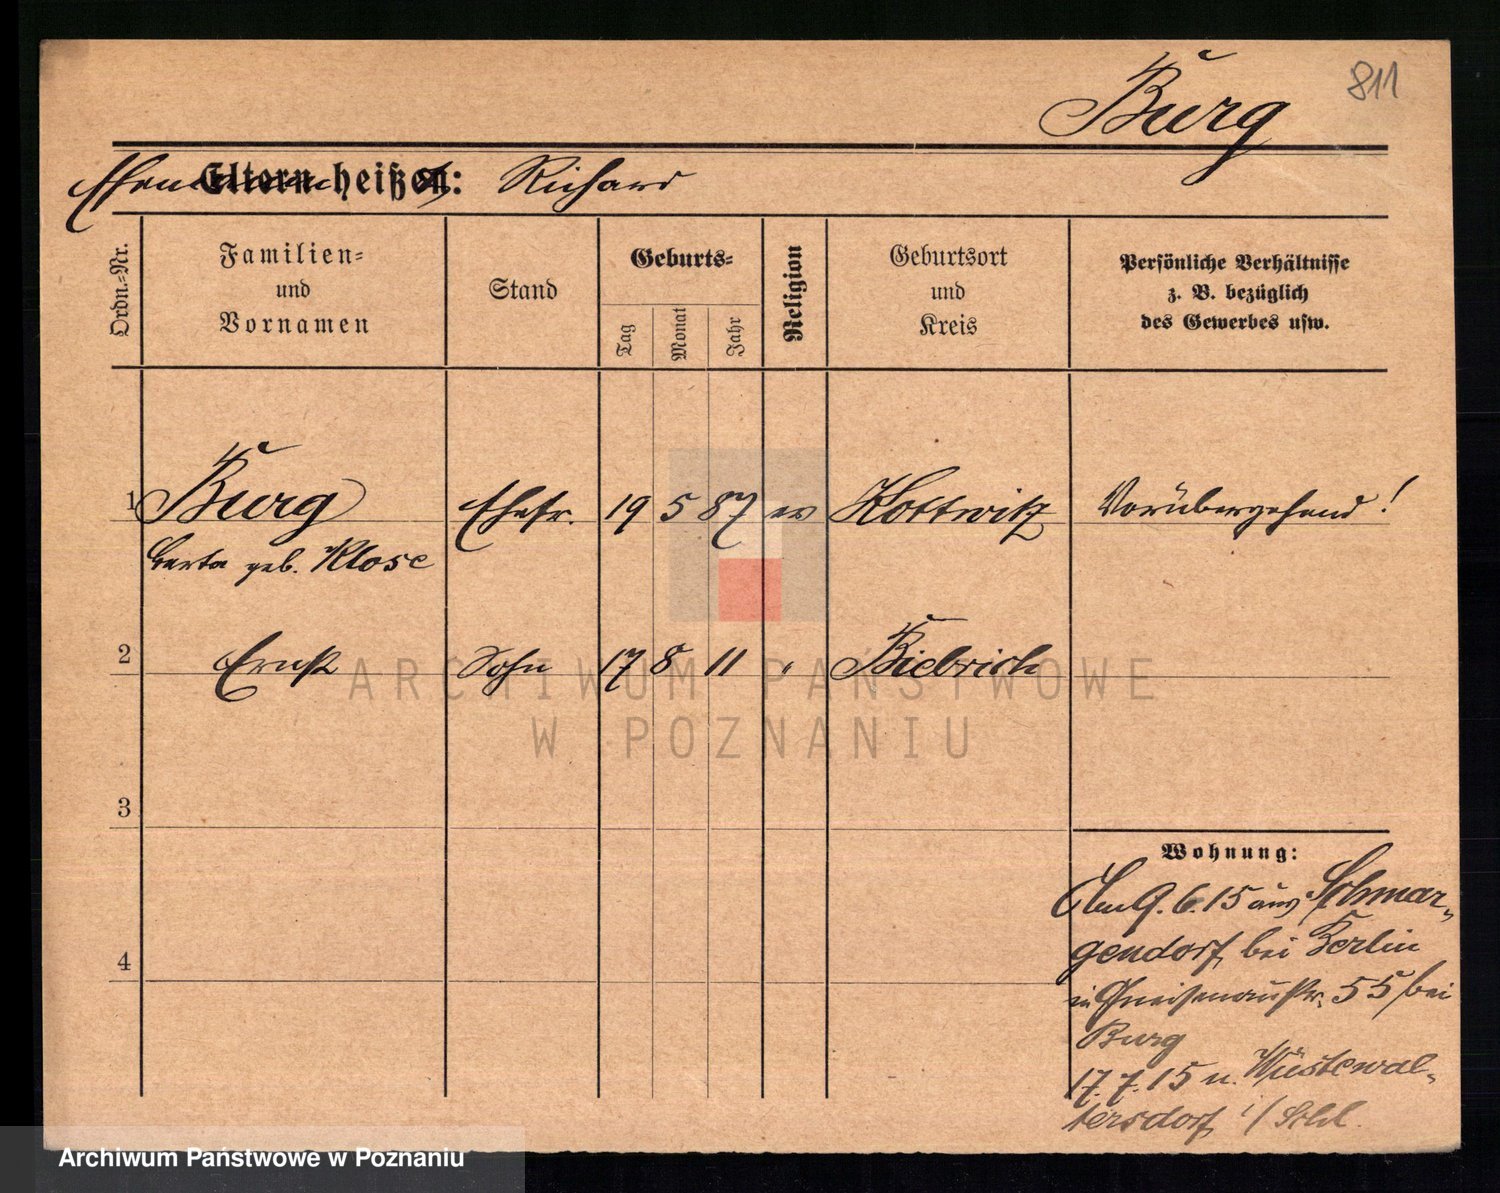 811
Burg
Ehemann heißt: Richard
Ordn.-Nr.
Familien-
und
Vornamen
Stand
Geburts-
Tag
Monat
Jahr
Religion
Geburtsort
und
Kreis
Persönliche Verhältnisse
z. B. bezüglich
des Gewerbes usw.
1 Burg Ehefr. 19 5 87 ev Kottwitz Vorübergehend!
Berta geb. Klose
2 Ernst Sohn 17 8 11 " Biebrich
3
4
Wohnung:
Am 9.6.15 aus Schmar-
gendorf bei Berlin
in Gneisenaustr. 55 bei
Burg
17.7.15 n. Wüstewal-
tersdorf i/Schl.
ARCHIWUM PAŃSTWOWE
W POZNANIU
Archiwum Państwowe w Poznaniu